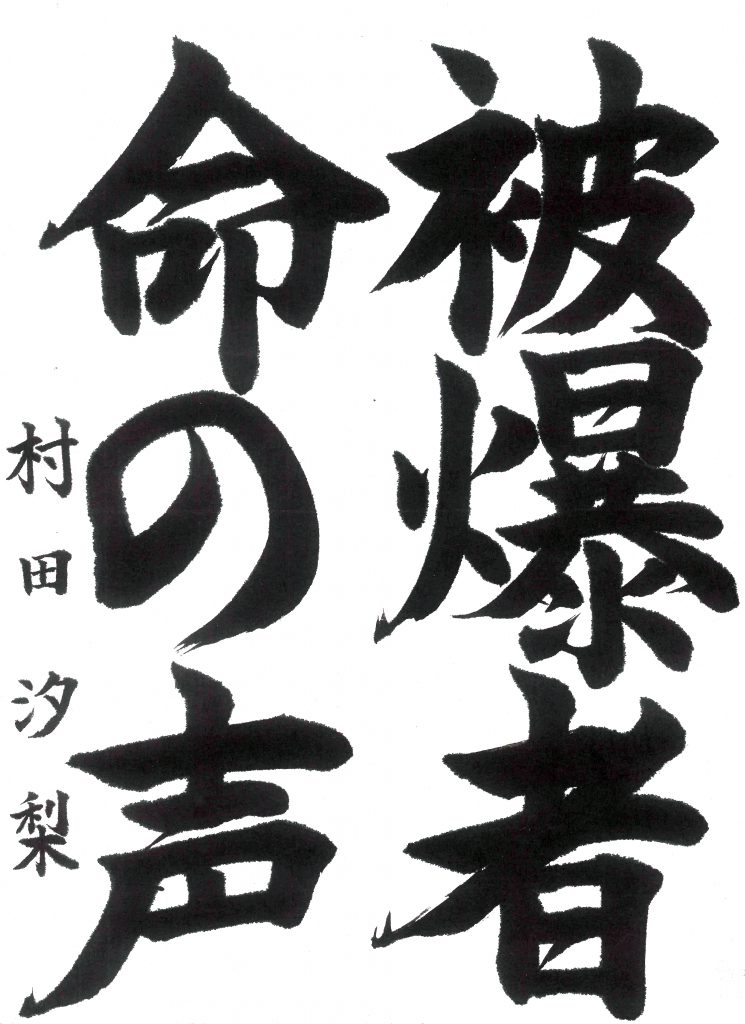 被爆者
命の声
村田汐梨